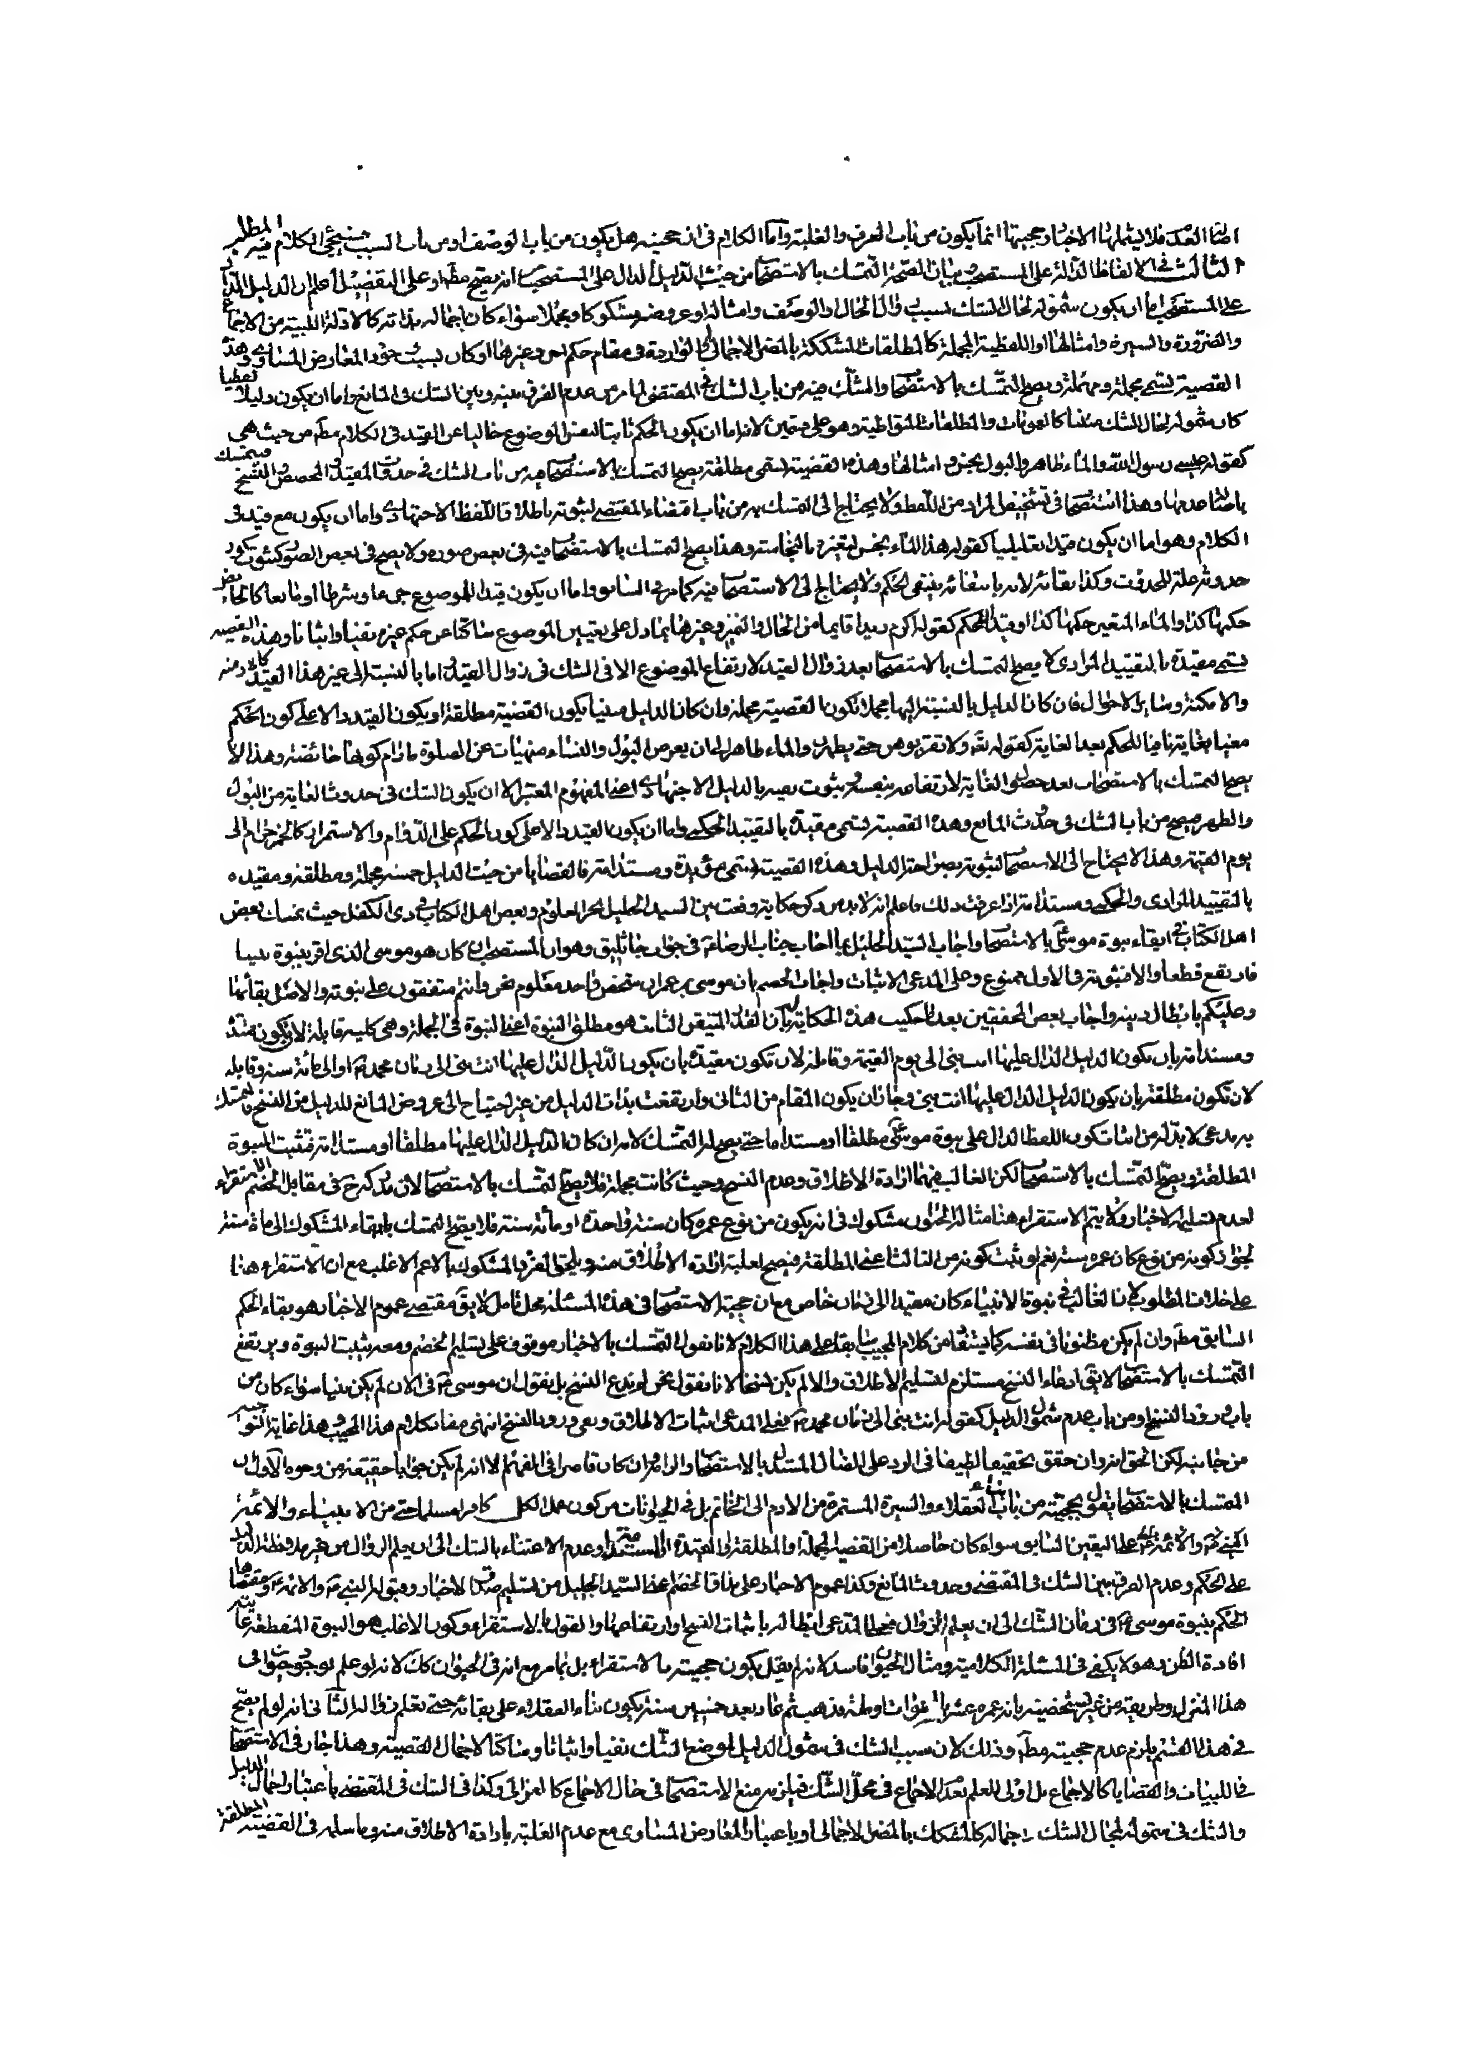 اصالة العدم فلا يشملها الاخبار وحجيتها انما يكون من باب العرف والغلبة واما الكلام في ان حجيته هل يكون من باب الوصف او من باب السبب فسيجئ الكلام فيه المطلب
الثالث في الالفاظ الدالة على المستصحب وبيان لصحة التمسك بالاستصحاب من حيث الدليل الدال على المستصحب انه يصح مطلقا او على التفصيل اعلم ان الدليل الدال
على المستصحب اما ان يكون شموله لحال الشك بسبب زوال الحال او الوصف وامثاله او عروضه مشكوكا ومجملا سواء كان اجماله بذاته كالادلة اللبية من الاجماع
والضرورة والسيرة وامثالها او اللفظية المجملة كالمطلقات المشككة بالمضر الاجمالي او الواردة في مقام حكم اخر وغيرهما او كان بسبب وجود المعارض المساوي وهذه
القضية تسمى مجملة ومهملة ويصح التمسك بالاستصحاب والشك فيه من باب الشك في المقتضي لما مر من عدم الفرق بينه وبين الشك في المانع واما ان يكون دليلا لفظيا
كان شموله لحال الشك مبينا كالعمومات والمطلقات المتواطية وهو على قسمين لانه اما ان يكون الحكم ثابتا لنفس الموضوع خاليا عن القيد في الكلام مطلقا من حيث هي
كقوله عيسى رسول الله والماء طاهر والبول نجس وامثالها وهذه القضية تسمى مطلقة ويصح التمسك بالاستصحاب فيه من باب الشك في حدوث المقيد والمخصص والنسخ ويتمسك
باصالة عدمها وهذا استصحاب في تشخيص المراد من اللفظ ولا يحتاج الى التمسك به من باب اقتضاء المقتضي لثبوته باطلاق اللفظ الاجتهادي واما ان يكون مع قيد في
الكلام وهو اما ان يكون قيدا تعليليا كقوله هذا الماء نجس لتغيره بالنجاسة وهذا يصح التمسك بالاستصحاب فيه في بعض صوره ولا يصح في بعض الصور كثبوت كون
حدوثه علة للحدوث وكذا بقائه لانه بانتفائه ينتفي الحكم ولا يحتاج الى الاستصحاب فيه كما مر في السابق واما ان يكون قيدا للموضوع جزءا وشرطا او تابعا كالحائض
حكمها كذا والماء المتغير حكمها كذا او قيدا للحكم كقوله اكرم زيدا قايما من الحال والتميز وغيرهما يدل على تعيين الموضوع ساكتا عن حكم غيره نفيا واثباتا وهذه القضية
تسمى مقيدة بالتقييد المرادي لا يصح التمسك بالاستصحاب بعد زوال القيد لارتفاع الموضوع الا في الشك في زوال القيد اما بالنسبة الى غير هذا القيد كالازمنة
والامكنة وساير الاحوال فان كان الدليل بالنسبة اليها مجملا تكون القضية مجملة وان كان الدليل مبنيا يكون القضية مطلقة او يكون القيد دالا على كون الحكم
مغيا بغاية نافيا للحكم بعد الغاية كقوله تعالى ولا تقربوهن حتى يطهرن والماء طاهر الى ان يعرض البول والنساء منهيات عن الصلوة مادام كونها حائضة وهذا الا
يصح التمسك بالاستصحاب بعد حصول الغاية لارتفاعه بنفسه وثبوت نفيه بالدليل الاجتهادي اعني المفهوم المعتبر الا ان يكون الشك في حدوث الغاية من البول
والطهر فيصح من باب الشك في حدوث المانع وهذه القضية تسمى مقيدة بالتقييد الحكمي واما ان يكون القيد دالا على كون الحكم على الدوام والاستمرار كالخمر حرام الى
يوم القيمة وهذا لا يحتاج الى الاستصحاب لثبوته بصراحة الدليل وهذه القضية تسمى مؤبدة ومستدامة فالقضايا من حيث الدليل خمسة مجملة ومطلقة ومقيدة
بالتقييد المرادي والحكمي ومستدامة اذا عرفت ذلك فاعلم انه لابد من ذكر حكاية وقعت بين السيد الجليل بحر العلوم وبعض اهل الكتاب في ذى الكفل حيث تمسك بعض
اهل الكتاب في ابقاء نبوة موسى بالاستصحاب واجاب السيد الجليل بما اجاب جناب الرضا في جواب جاثليق وهو ان المستصحب ان كان هو موسى الذي اقر بنبوة نبينا
فارتفع قطعا والا فثبوته في الاول ممنوع وعلى المدعي الاثبات واجاب الخصم بان موسى بن عمران شخص واحد معلوم نفر وانتم متفقون على نبوته والاصل بقائها
وعليكم بابطال دينه واجاب بعض المحققين بعد ما حكيت هذه الحكاية بان القدر المتيقن الثابت هو مطلق النبوة اعني النبوة في الجملة وهي كلية قابلة لان يكون ممتدة
ومستدامة بان يكون الدليل الدال عليها انت نبي الى يوم القيمة وقابلة لان تكون مقيدة بان يكون الدليل الدال عليها انت نبي الى زمان محمد او الى مائة سنة وقابلة
لان تكون مطلقة بان يكون الدليل الدال عليها انت نبي وجاز ان يكون المقام من الثاني وارتفعت بذات الدليل من غير احتياج الى عروض المانع للدليل من النسخ والتمسك
به مدعي لابد له من اثبات كون اللفظ الدال على نبوة موسى مطلقا او مستداما حتى يصح له التمسك لامر ان كان الدليل الدال عليها مطلقا او مستدامة فتثبت النبوة
المطلقة ويصح التمسك بالاستصحاب لكن الغالب فيهما ارادة الاطلاق وعدم النسخ وحيث كانت مجملة فلا يصح التمسك بالاستصحاب لان مدركه ح في مقابل الخصم الاستقراء
لعدم تسليم الاخبار ولا يتم الاستقراء هنا مثاله الحيوان مشكوك في انه يكون من نوع عمره كان سنة واحدة او مائة سنة فلا يصح التمسك بابقاء المشكوك الى مائة سنة
لجواز كونه من نوع كان عمره سنة نعم لو ثبت كونه من الثالث اعني المطلقة فيصح لغلبة ارادة الاطلاق منه ويلحق الفرد المشكوك بالاعم الاغلب مع ان الاستقراء هنا
على خلاف المطلوب لان الغالب في نبوة الانبياء كان مقيدا الى زمان خاص مع ان حجية الاستصحاب في هذه المسئلة محل تامل لا يق مقتضى عموم الاخبار هو بقاء الحكم
السابق مطلقا وان لم يكن مظنونا في نفسه كما يستفاد من كلام المجيب سابقا على هذا الكلام لانا نقول التمسك بالاخبار موقوف على تسليم الخصم ومعه يثبت النبوة ويرتفع
التمسك بالاستصحاب لا يق ادعاء النسخ مستلزم لتسليم الاطلاق والا لم يكن نسخا لانا نقول نحن لو ندع النسخ بل نقول ان موسى في الان لم يكن نبيا سواء كان من
باب ورود النسخ او من باب عدم شمول الدليل كقوله انت نبي الى زمان محمد فعلى المدعي اثبات الاطلاق ونفي ورود النسخ انتهى مضافا كلام هذا المجيب هذا غاية التوجيه
من جانبه لكن الحق انه وان حقق تحقيقا لطيفا في الرد على الضال المتمسك بالاستصحاب والزامه وان كان قاصرا في الفهم الا انه لم يكن جوابا حقيقة من وجوه الاول ان
المتمسك بالاستصحاب يقول بحجيته من باب بناء العقلاء والسيرة المستمرة من الادم الى الخاتم بل في الحيوانات من كون عمل الكل كافرا مسلما حتى من الانبياء والائمة
على اليقين السابق سواء كان حاصلا من القضية المجملة او المطلقة او المقيدة او المستدامة وعدم الاعتناء بالشك الى ان يعلم الزوال من غير ملاحظة الدليل
على الحكم وعدم الفرق بين الشك في المقتضي وحدوث المانع وكذا عموم الاخبار على مذاق الخصم اعني السيد الجليل من تسليم صدق الاخبار وقبوله النبي والائمة ومقتضاها
الحكم بنبوة موسى في زمان الشك الى ان يعلم الزوال فيحتاج المدعي ابطاله باثبات النسخ او ارتفاعها والقول بالاستقراء وكون الاغلب هو النبوة المنقطعة غايته
افادة الظن وهو لا يكفي في المسئلة الكلامية ومثال الحيوان فاسد لانه لم يقل بكون حجيته بالاستقراء بل بما مر مع انه في الحيوان كان لانه لو علم بوجود حيوان في
هذا المنزل وطريقه من غير تشخيصه بانه عمره عشر سنوات وذهب ثم عاد بعد خمسين سنة يكون بناء العقلاء على بقائه حتى نعلم زواله الثاني انه لو لم يصح
في هذا القسم يلزم عدم حجيته مطلقا وذلك لان سبب الشك في شمول الدليل لموضع الشك نفيا واثباتا وساكتا لاجمال القضية وهذا جار في الاستصحاب
في اللبيات والقضايا كالاجماع بل اولى للعلم بعدم الاجماع في محل الشك فيلزمه منع الاستصحاب في حال الاجماع كالغزالى وكذا في الشك في المقتضى باعتبار اجمال الدليل
والشك في شموله لحال الشك اجماله كالمشكك بالمضر الاجمالي او باعتبار المعارض المساوى مع عدم الغلبة بارادة الاطلاق منه وما سلمه في القضية المطلقة